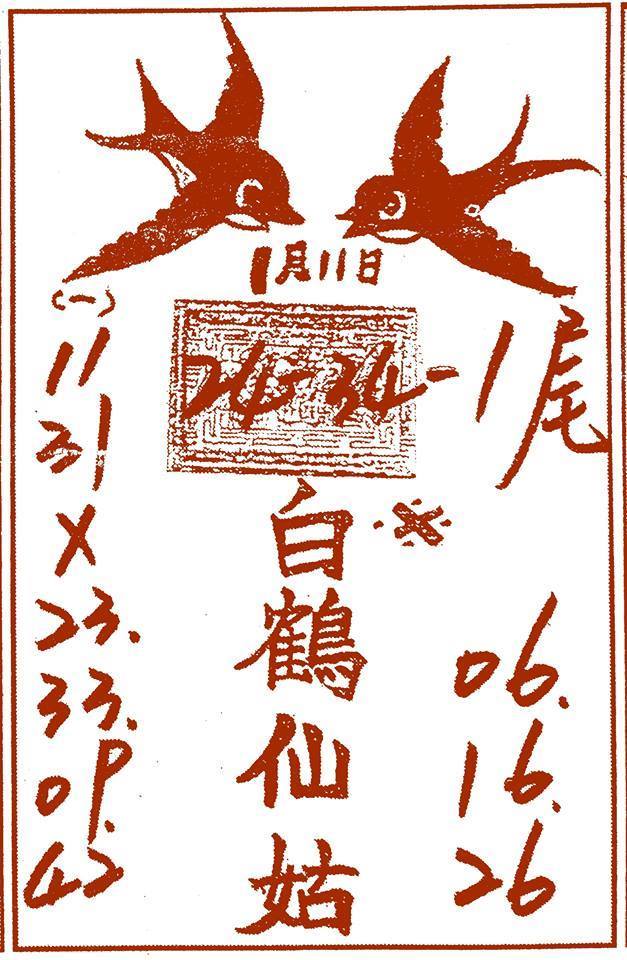 1月11日
24-34-1尾
(一)
11
21
X
23.
33.
09.
42
白鶴仙姑
※
06.
16.
26